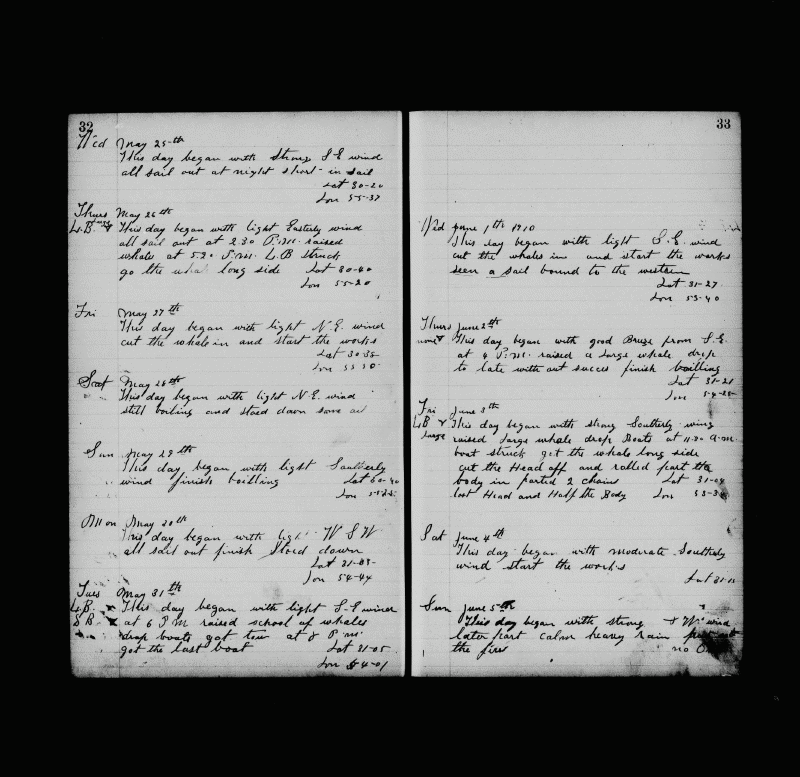 32
Wed May 25th
This day began with Strong S E wind
all sail out at night short in sail
Lat 30-20
Lon 55-37
Thurs May 26th
L.B. This day began with light Easterly wind
all sail out at 2.30 P.M. raised
whales at 5.20 P.M. L.B Struck
go the whal long side Lat 30-40
Lon 55-20
Fri May 27th
This day began with light N.E. wind
cut the whale in and start the works
Lat 30-38
Lon
Sat May 28th
This day began with light N.E. wind
still boiling and stoed down some oil
Sun May 29th
This day began with light Southerly
wind finish boilling
Lon
Mon May 30th
This day began with light W S W
all sail out finish Stoed down
Lat 31-03
Lon 54-44
Tues May 31th
L.B. This day began with light S-E wind
S B at 6 P M raised school of whales
drop boats got tew at 8 P.M.
got the last boat Lat 31-05
Lon 54-01
33
Wd June 1th 1910
This day began with light S.E. wind
cut the whales in and start the works
seen a sail bound to the western
Lat 31-27
Lon 53-40
Thurs June 2th
This day began with good Breze from S.E.
at 4 P.M. raised a Large whale drop
to late with out succes finish boilling
Lat 31-21
Lon
Fri June 3th
L.B & This day began with strong Southerly wing
Large raised Large whale drop Boats at 11-30 A.M
boat struck got the whale long side
cut the Head off and rolled part the
body in parted 2 chains Lat 31-04
lost Head and Half the Body Lon
Sat June 4th
This day began with moderate Southerly
wind start the works
Lat 31-11
Sun June 5th
This day began with strong W wind
later part calm heavy rain
the fires no